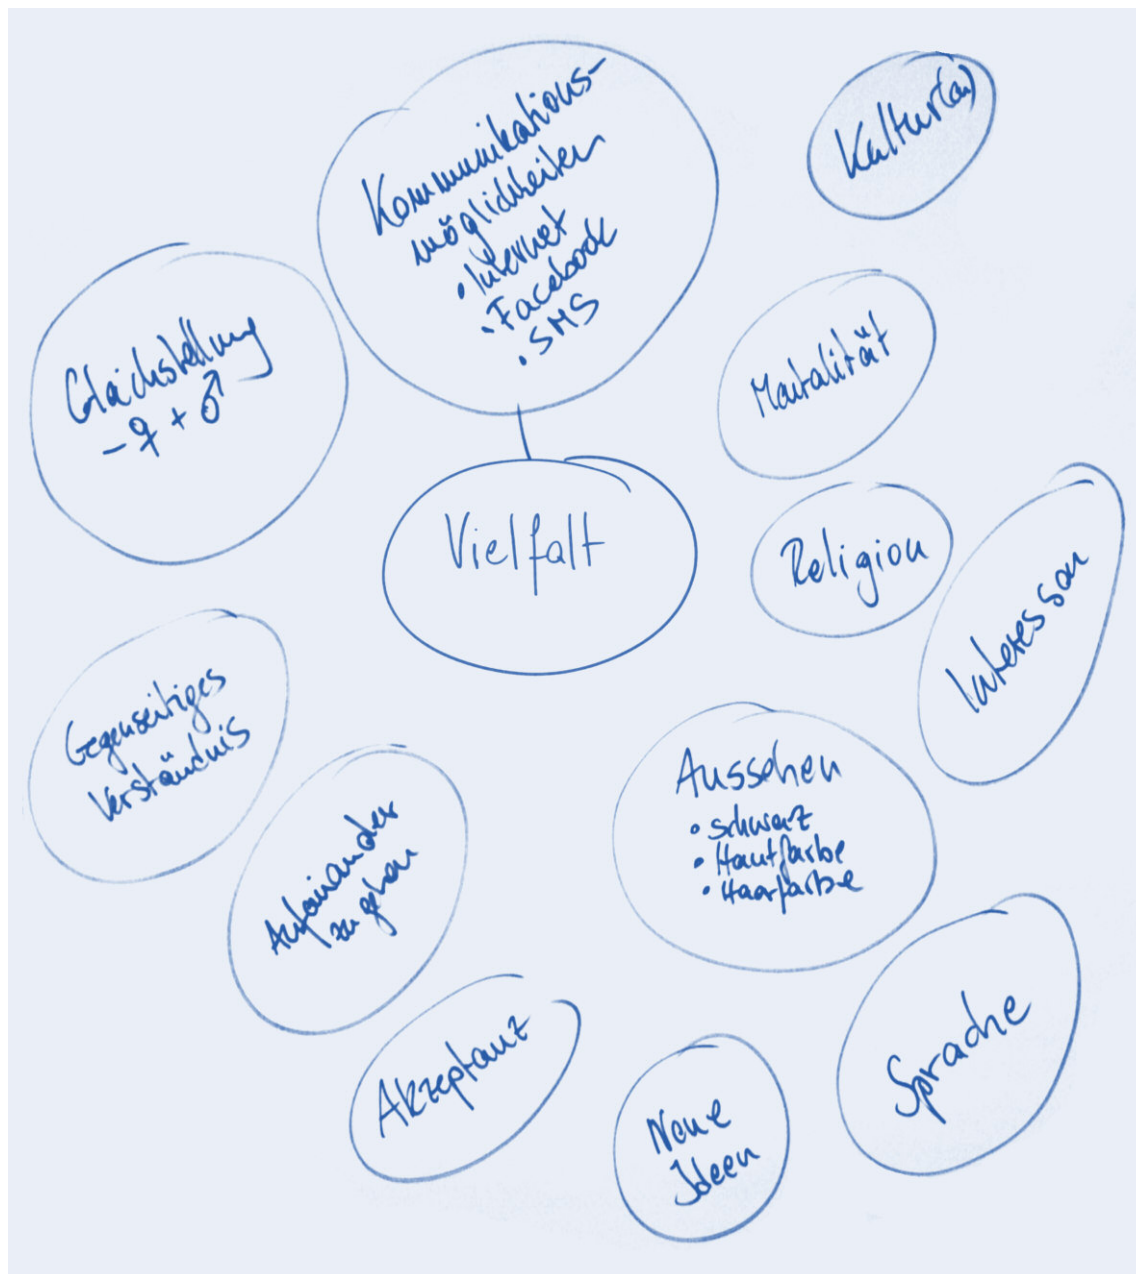 Kommunikations-
möglichkeiten
• Internet
• Facebook
• SMS
Kultur(en)
Gleichstellung
- ♀ + ♂
Mentalität
Vielfalt
Religion
Interessen
Gegenseitiges
Verständnis
Aussehen
• schwarz
• Hautfarbe
• Haarfarbe
Aufeinander
zu gehen
Akzeptanz
Neue
Ideen
Sprache